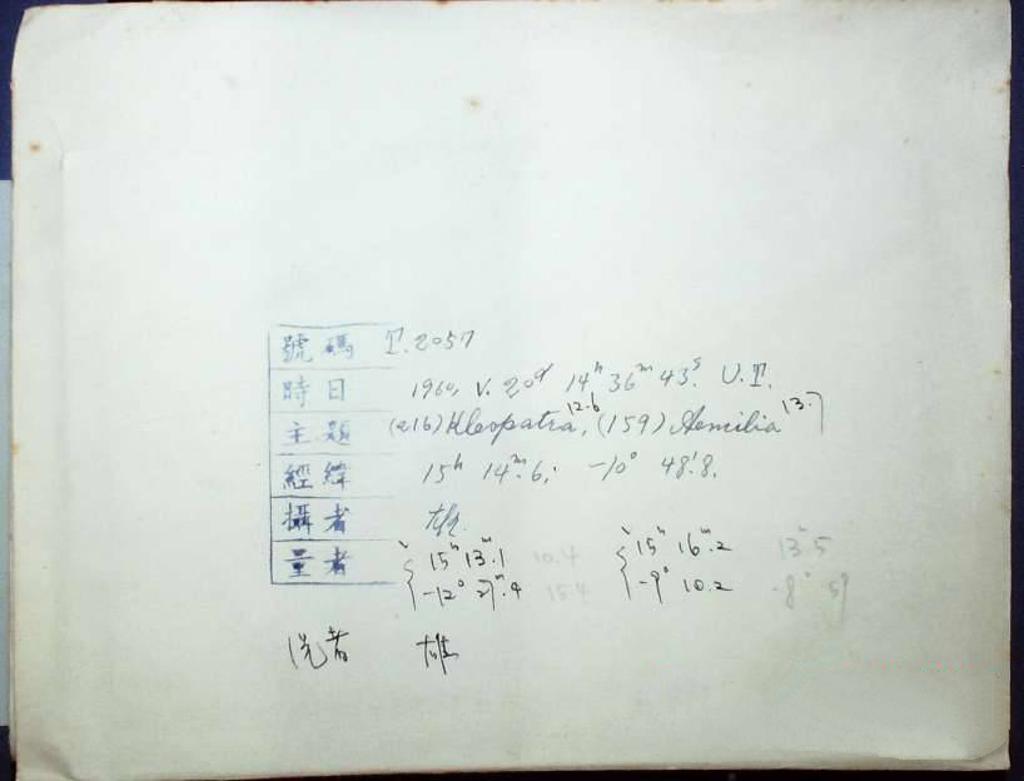 號碼 T. 2057
時日 1960, V. 20ᵈ 14ʰ 36ᵐ 43ˢ. U.T.
主題 (216) Kleopatra, 12.6 (159) Aemilia 13.7
經緯 15ʰ 14ᵐ.6; -10° 48'.8.
攝者 雄
量者 15ʰ 13ᵐ.1 10.4 15ʰ 16ᵐ.2 13ᵐ.5
-12° 27'.4 15.4 -9° 10.2 -8° 59
洗者 雄